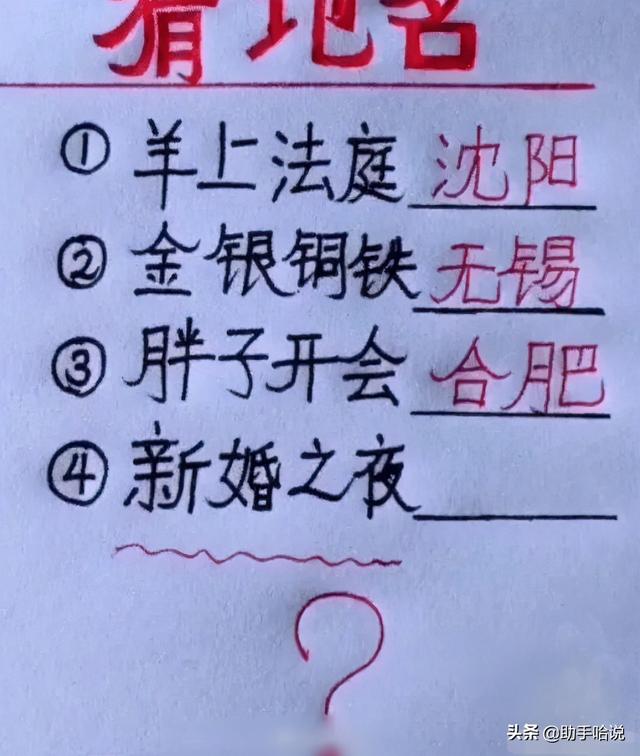 猜地名
①羊上法庭 沈阳
②金银铜铁 无锡
③胖子开会 合肥
④新婚之夜
?
头条 @助手哈说